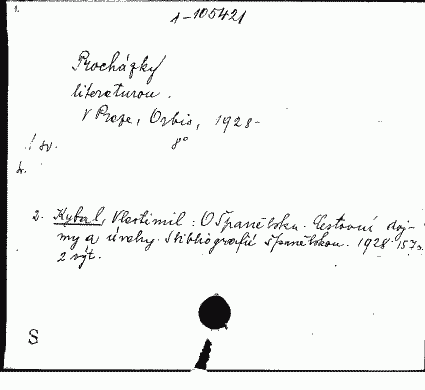 1.
1-105421
Procházky
literaturou.
V Praze, Orbis, 1928-
1 sv. 8°
2. Kybal, Vlastimil: O Španělsku. Cestovní doj-
my a úvahy. S bibliografií španělskou. 1928. 157 s.
2 výt.
S